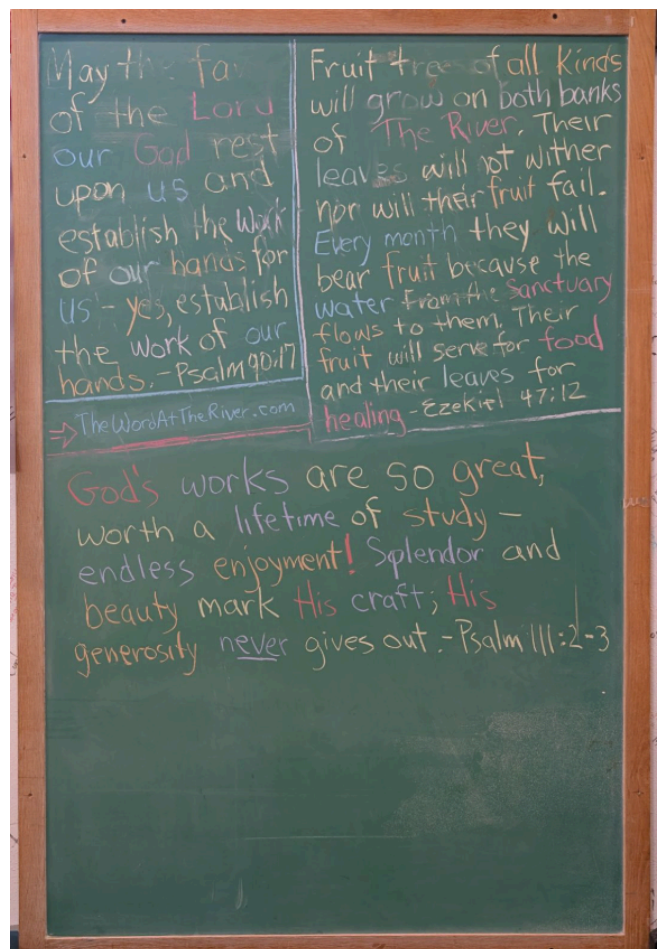 May the fav
of the Lord
our God rest
upon us and
establish the work
of our hands for
us - yes, establish
the work of our
hands. - Psalm 90:17
TheWordAtTheRiver.com
Fruit trees of all kinds
will grow on both banks
of The River. Their
leaves will not wither
nor will their fruit fail.
Every month they will
bear fruit because the
water from the sanctuary
flows to them. Their
fruit will serve for food
and their leaves for
healing - Ezekiel 47:12
God's works are so great,
worth a lifetime of study -
endless enjoyment! Splendor and
beauty mark His craft; His
generosity never gives out. - Psalm 111:2-3